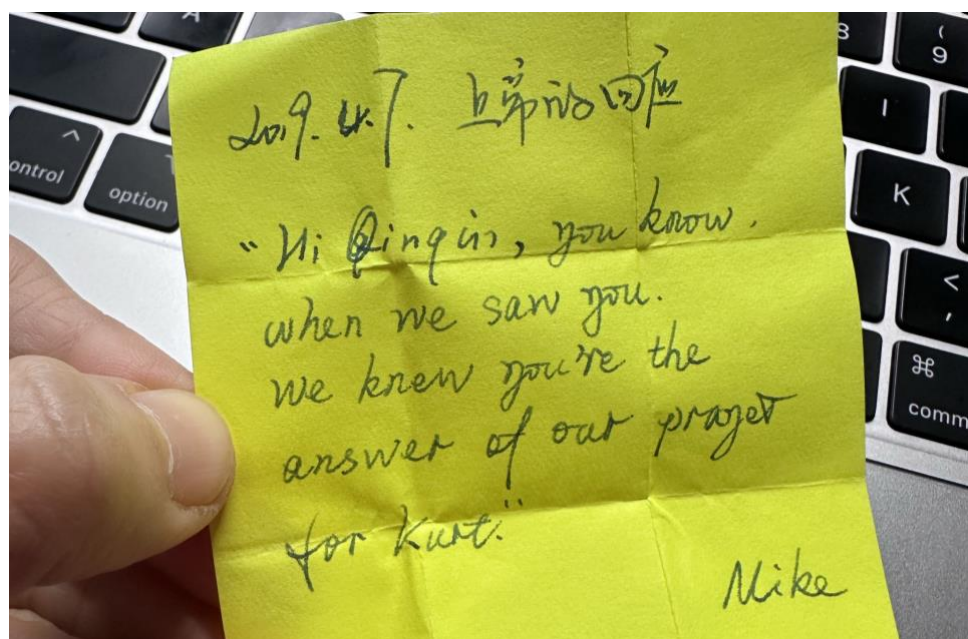 2019.4.7. 上帝的回应
"Hi Qingin, you know.
when we saw you.
We knew you're the
answer of our prayer
for Kurt."
Mike
A
control
option
8
(
9
I
K
<
,
⌘
comm